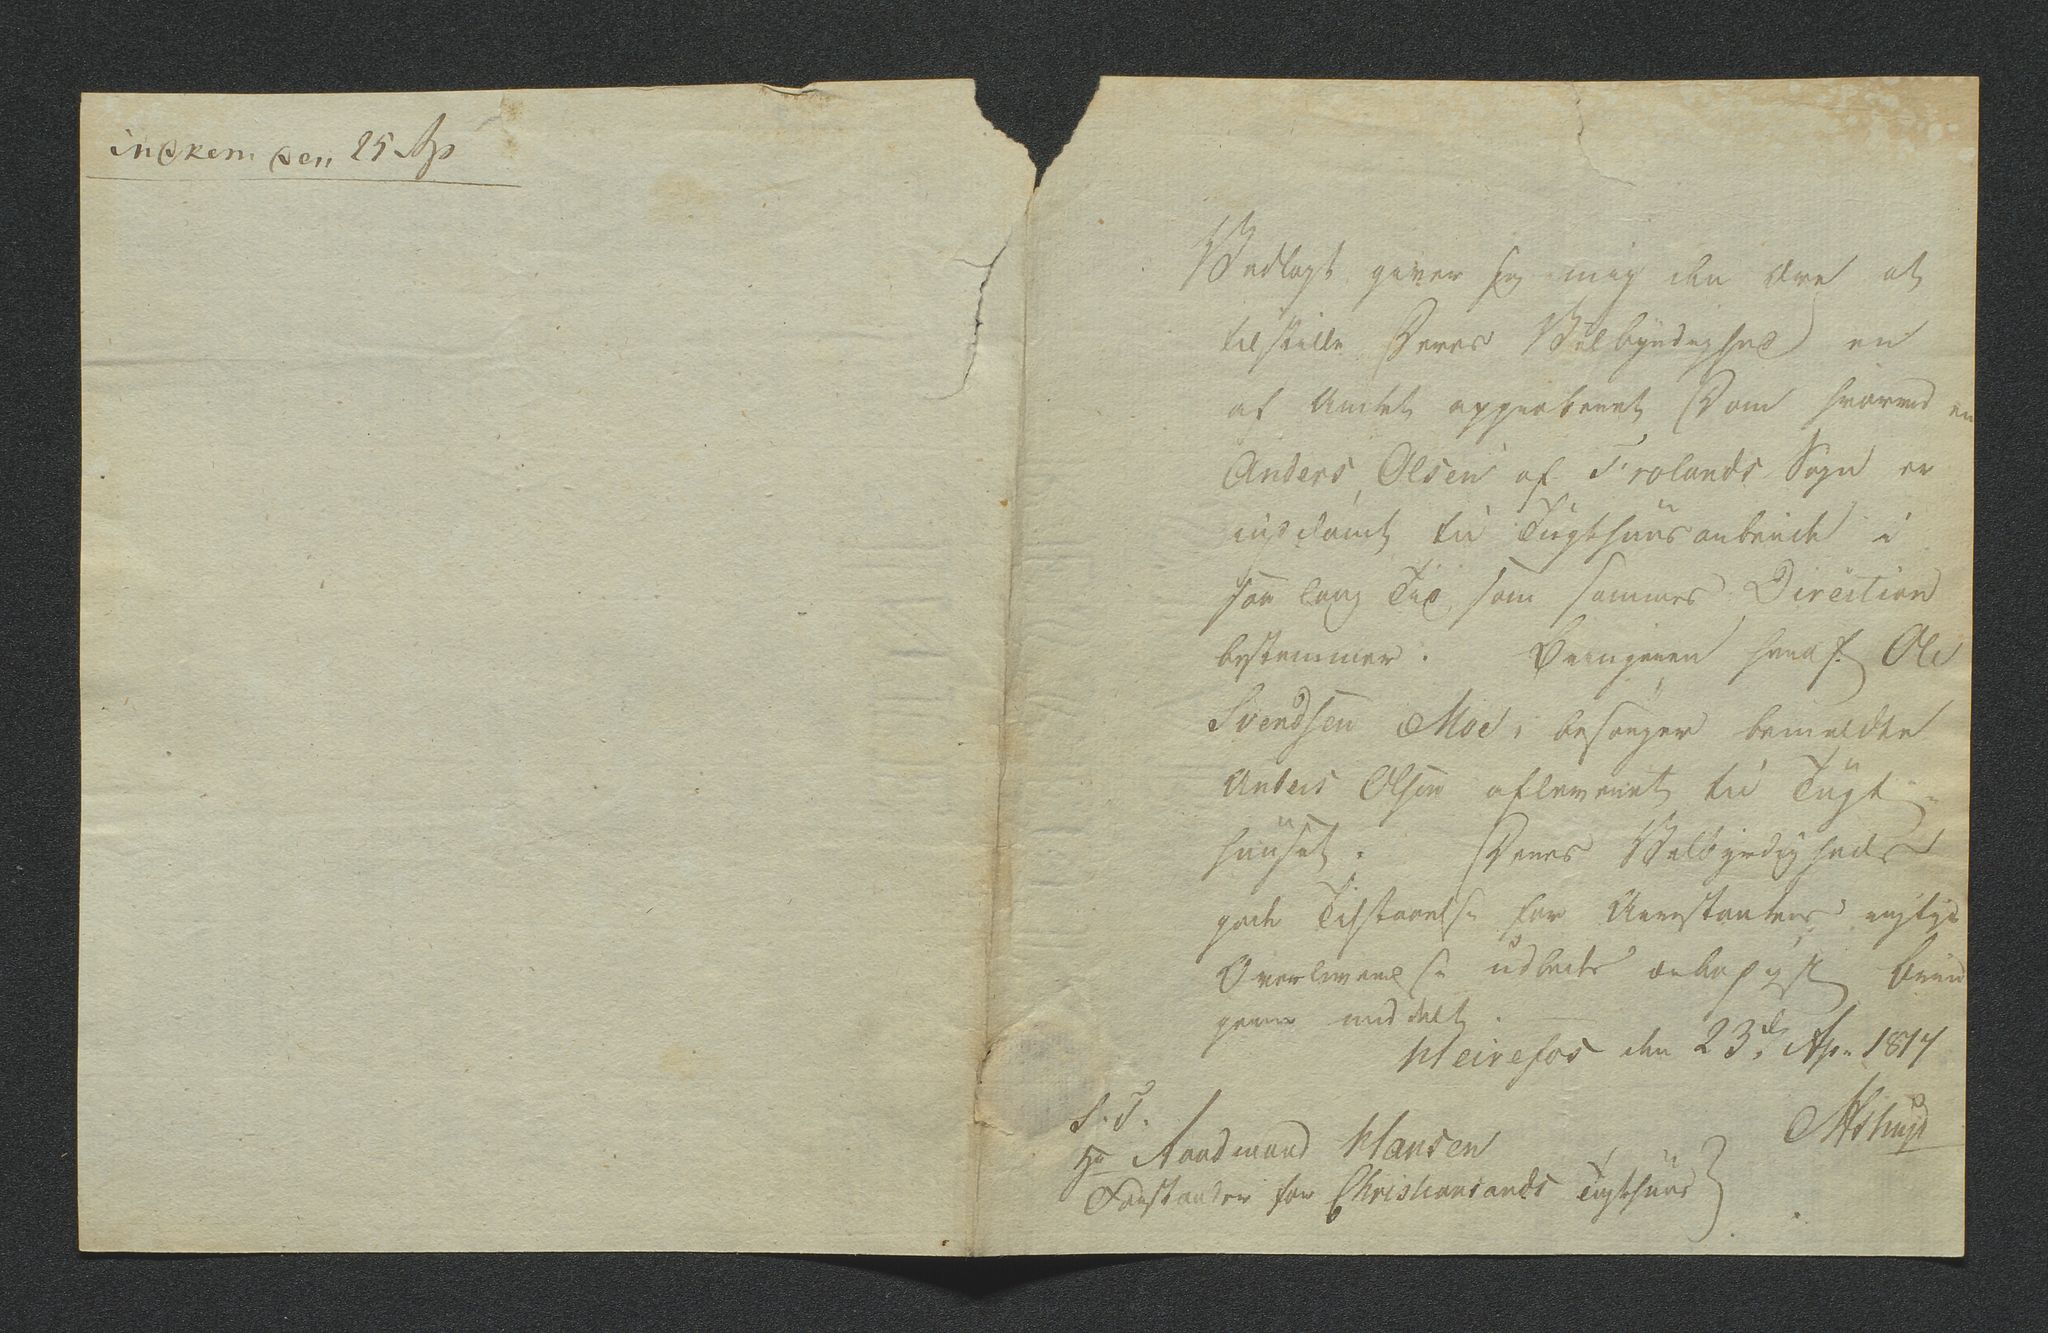 indkom den 25 Ap
Vedlagt giver jeg mig den Ære at
tilstille Deres Velbyrdighed en
af Amtet approberet Dom hvorved en
Anders Olsen af Frolands Sogn er
inddømt til Tugthuusarbeide i
saa lang Tid, som sammes Direction
bestemmer. Bringeren heraf Ole
Svendsen Moe, besørger bemeldte
Anders Olsen afleveret til Tugt-
huuset. Deres Velbyrdigheds
gode Tilstaaelse for Arrestantens rigtige
Overleverelse udbedes ærbødigst Brin
geren meddelt.
den 23d Ap. 1817
S. T.
Hr Raadmand Hansen
Forstander for Christiansands Tugthuus